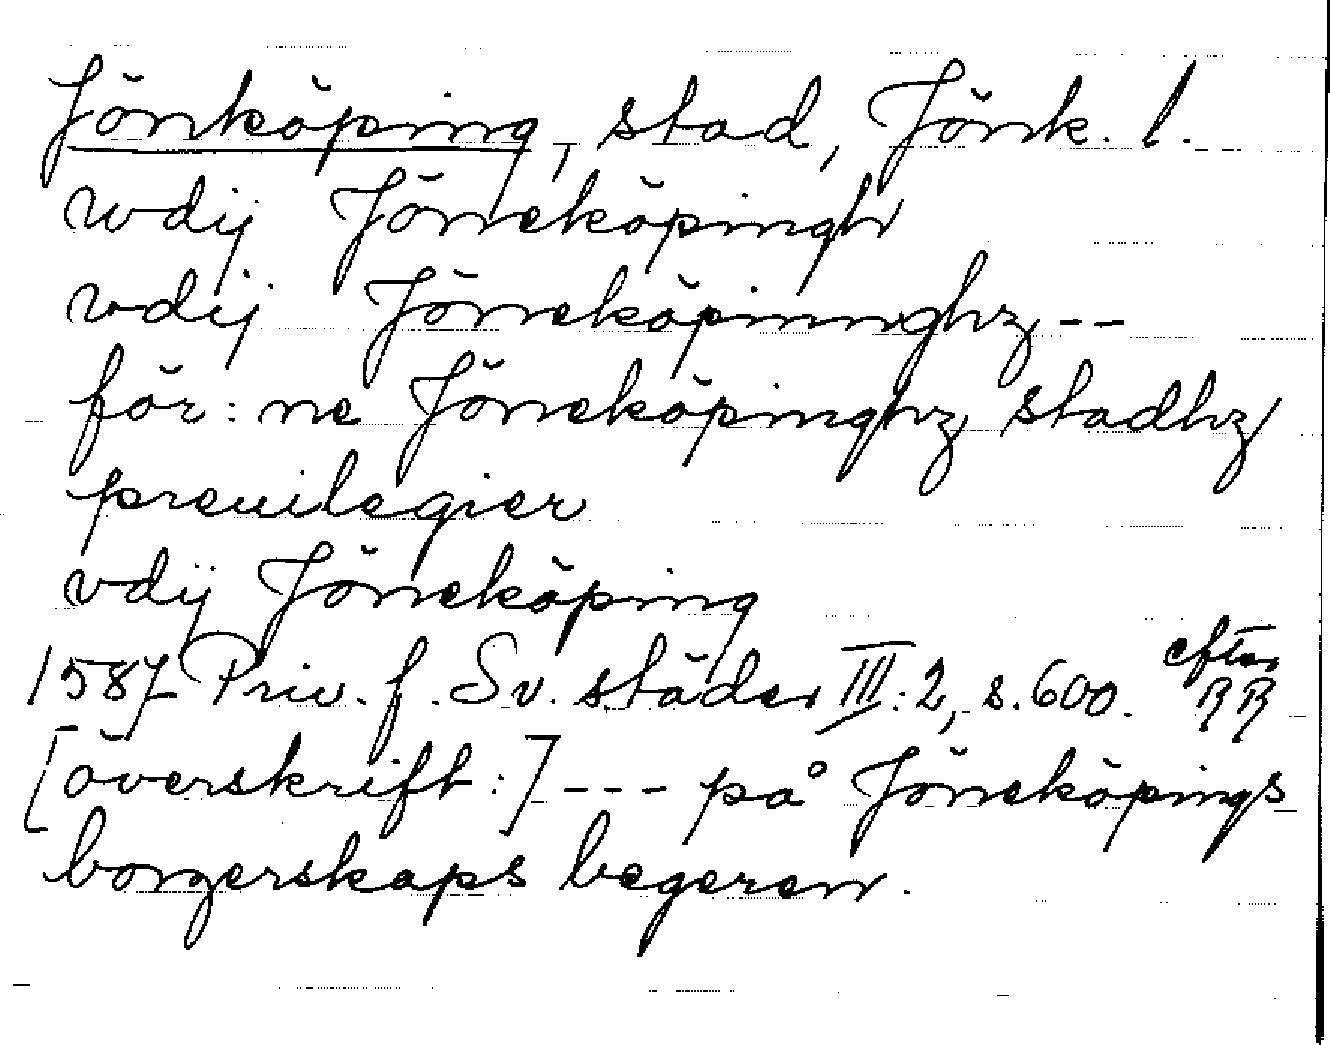 Jönköping, stad, Jönk. l.
wdij Jöneköpingh
vdij Jöneköpinnghz --
för:ne Jöneköpinghz stadhz
preuilegier
vdij Jöneköping
1587 Priv. f. Sv. städer III:2, s.600. efter RR
[överskrift:] --- på Jöneköpings
borgerskaps begeren.